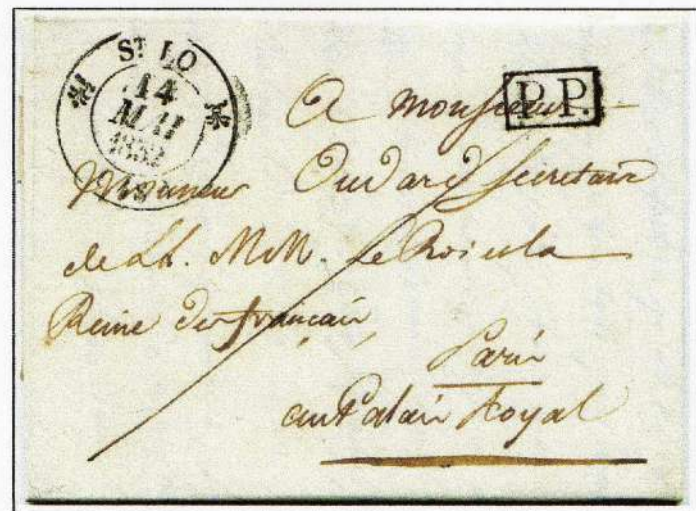 ST LO
14
MAI
1832
(48)
P.P.
A monsieur
Monsieur Oudard Secretaire
de LL. MM. Le Roi et la
Reine des français,
Paris
au Palais Royal